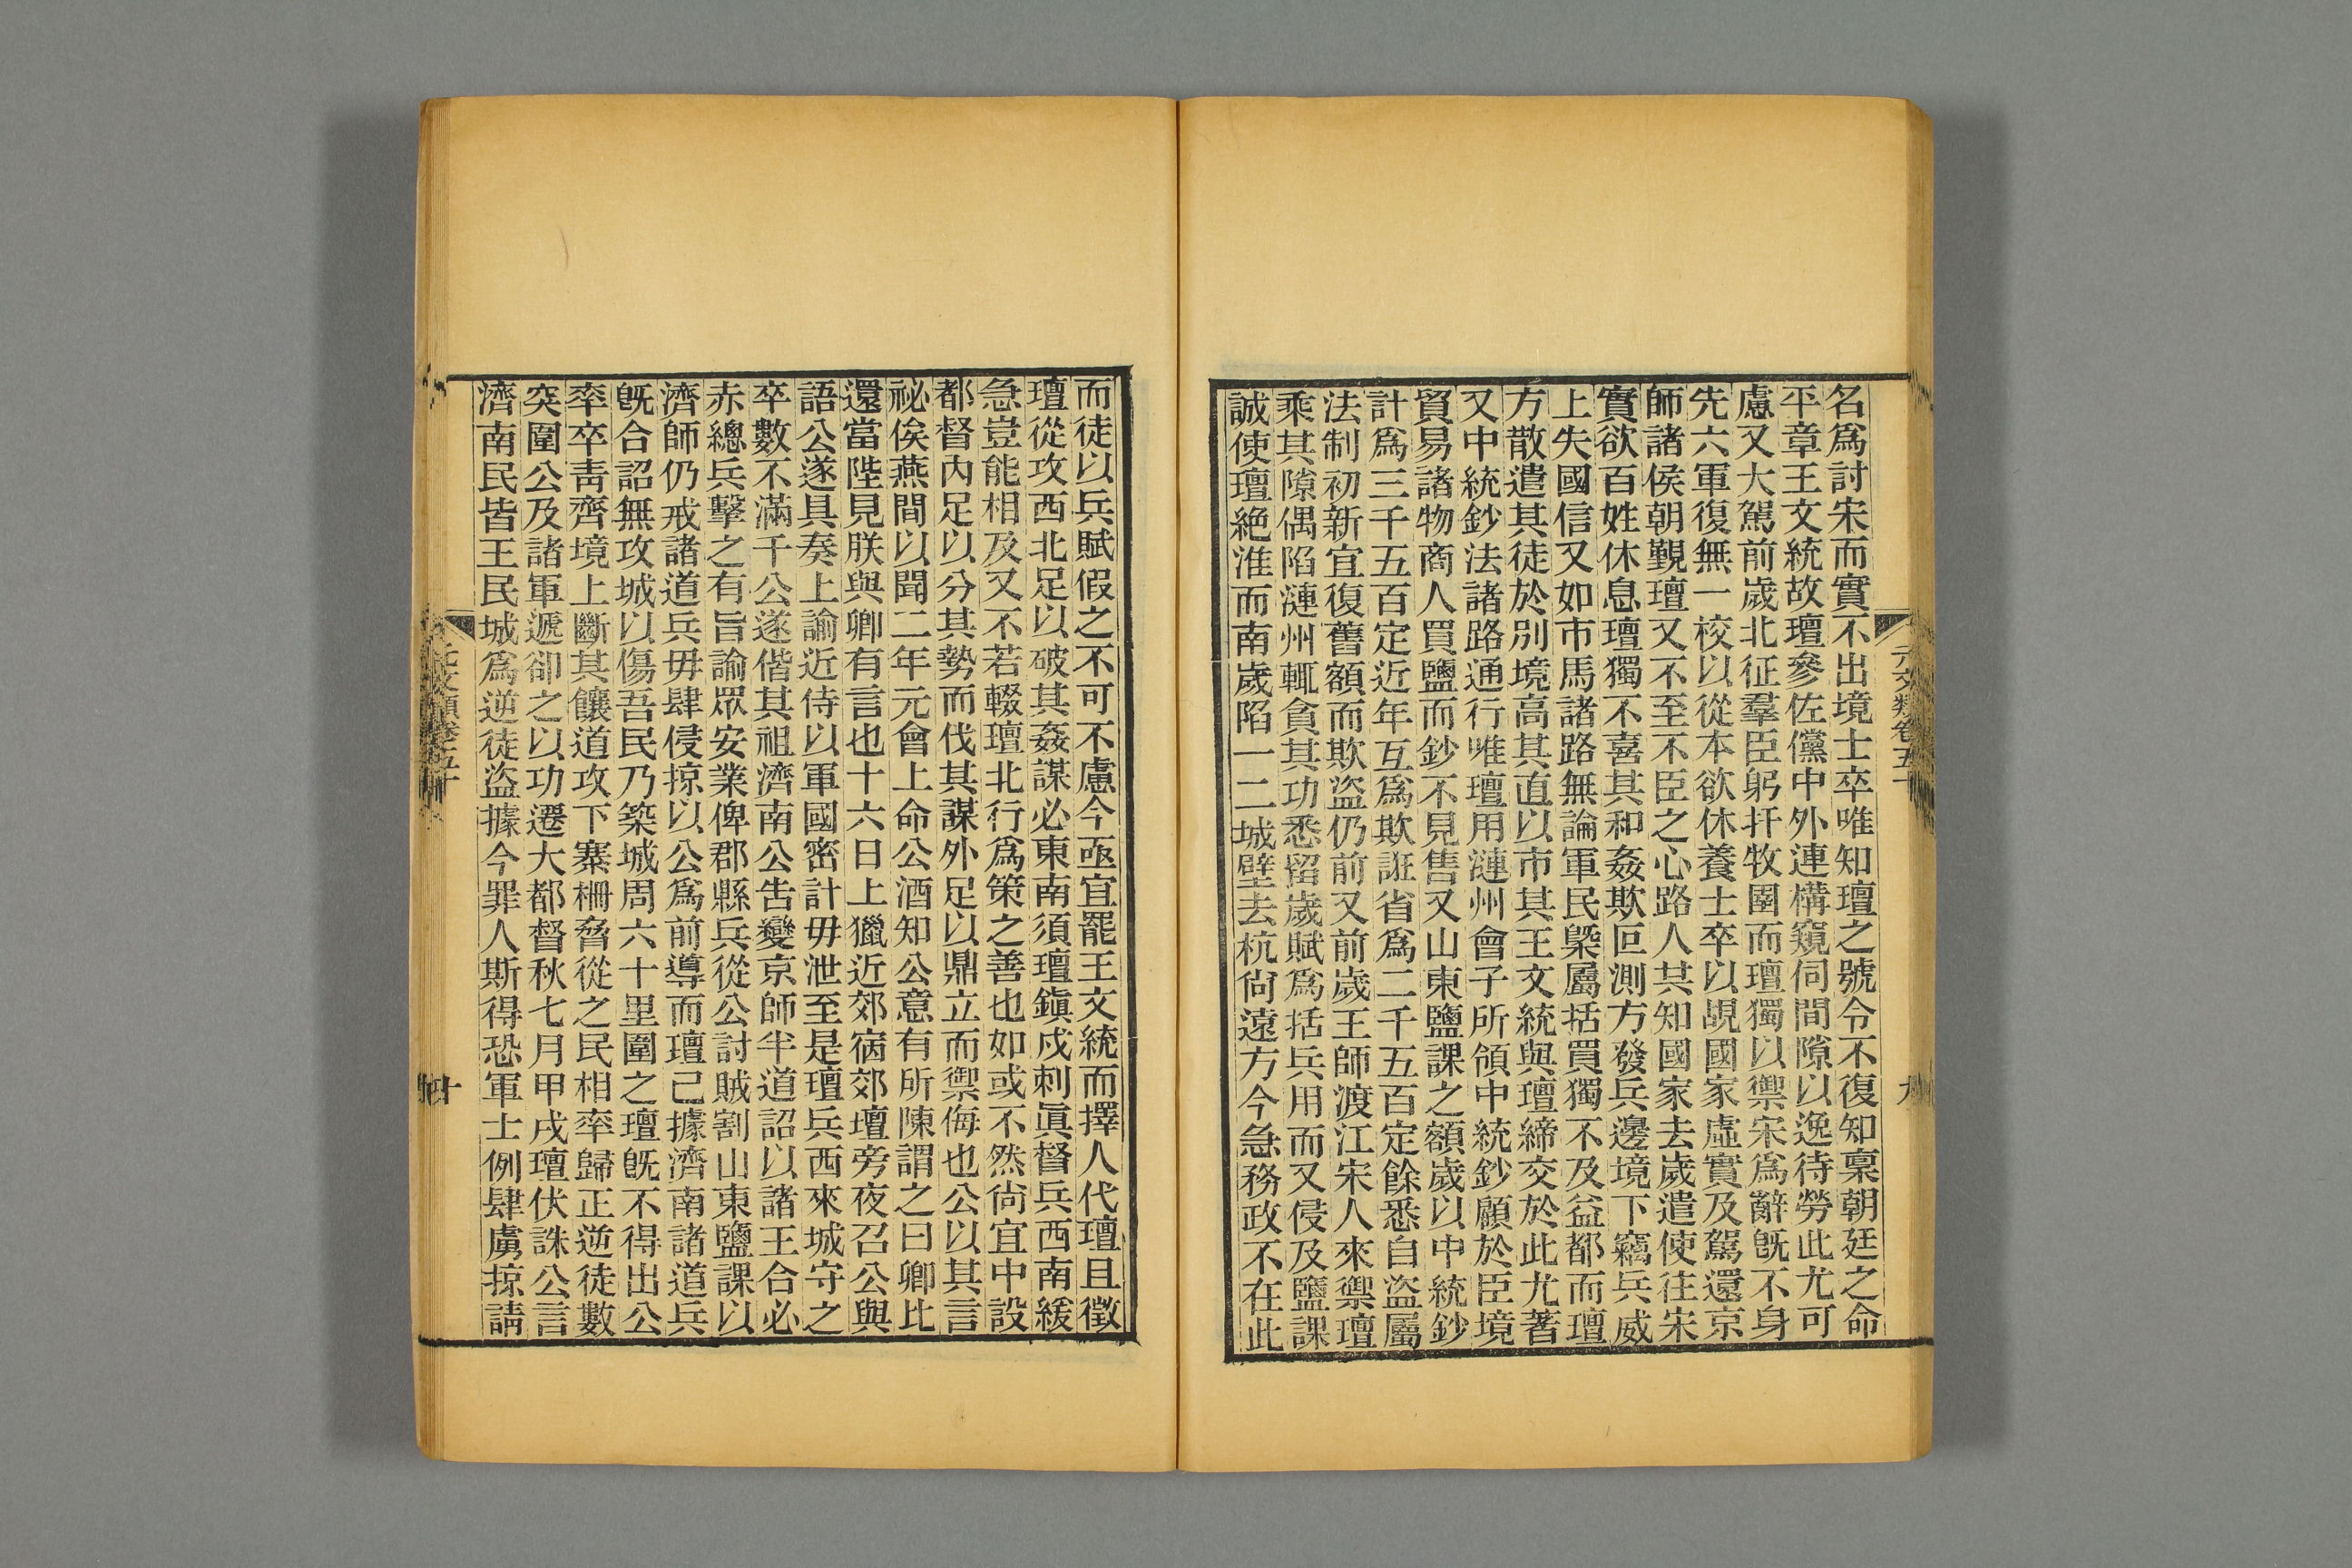 名爲討宋而實不出境士卒唯知璮之號令不復知稟朝廷之命
平章王文統故璮參佐儻中外連構窺伺間隙以逸待勞此尤可
慮又大駕前歲北征羣臣躬扞牧圉而璮獨以禦宋爲辭旣不身
先六軍復無一校以從本欲休養士卒以覘國家虛實及駕還京
師諸侯朝覲璮又不至不臣之心路人共知國家去歲遣使往宋
實欲百姓休息璮獨不喜其和姦欺叵測方發兵邊境下竊兵威
上失國信又如市馬諸路無論軍民槩屬括買獨不及益都而璮
方散遣其徒於別境高其直以市其王文統與璮締交於此尤著
又中統鈔法諸路通行唯璮用漣州會子所領中統鈔顧於臣境
貿易諸物商人買鹽而鈔不見售又山東鹽課之額歲以中統鈔
計爲三千五百定近年互爲欺誑省爲二千五百定餘悉自盜屬
法制初新宜復舊額而欺盜仍前又前歲王師渡江宋人來禦璮
乘其隙偶陷漣州輒貪其功悉留歲賦爲括兵用而又侵及鹽課
誠使璮絕淮而南歲陷一二城壁去杭尙遠方今急務政不在此
元文類卷五十
九
而徒以兵賦假之不可不慮今亟宜罷王文統而擇人代璮且徵
璮從攻西北足以破其姦謀必東南須璮鎭戍刺眞督兵西南緩
急豈能相及又不若輟璮北行爲策之善也如或不然尙宜中設
都督內足以分其勢而伐其謀外足以鼎立而禦侮也公以其言
祕俟燕間以聞二年元會上命公酒知公意有所陳謂之曰卿比
還當陛見朕與卿有言也十六日上獵近郊㝛郊壇旁夜召公與
語公遂具奏上諭近侍以軍國密計毋泄至是璮兵西來城守之
卒數不滿千公遂偕其祖濟南公吿變京師半道詔以諸王合必
赤總兵擊之有旨諭眾安業俾郡縣兵從公討賊割山東鹽課以
濟師仍戒諸道兵毋肆侵掠以公爲前導而璮己據濟南諸道兵
旣合詔無攻城以傷吾民乃築城周六十里圍之璮旣不得出公
率卒靑齊境上斷其饟道攻下寨柵脅從之民相率歸正逆徒數
突圍公及諸軍遞卻之以功遷大都督秋七月甲戌璮伏誅公言
濟南民皆王民城爲逆徒盜據今罪人斯得恐軍士例肆虜掠請
元文類卷五十
十